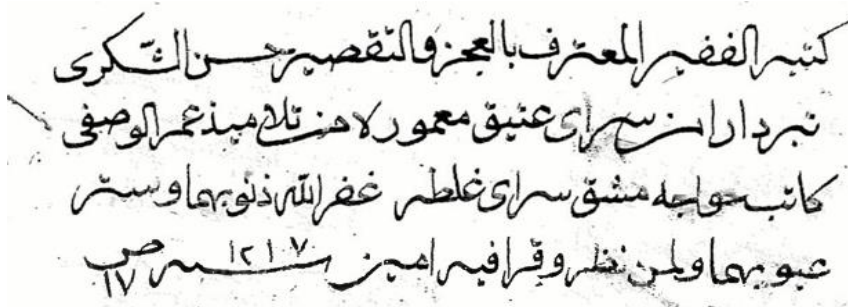 كتبه الفقير المعترف بالعجز والتقصير حسن الشكرى
تبردار ان سراى عتيق معموره من تلاميذ عمر الوصفى
كاتب خواجه مشق سراى غلطه غفر الله ذنوبهما وستر
عيوبهما ولمن نظر وقرا فيه امين سنه ١٢١٧ ص ١٧